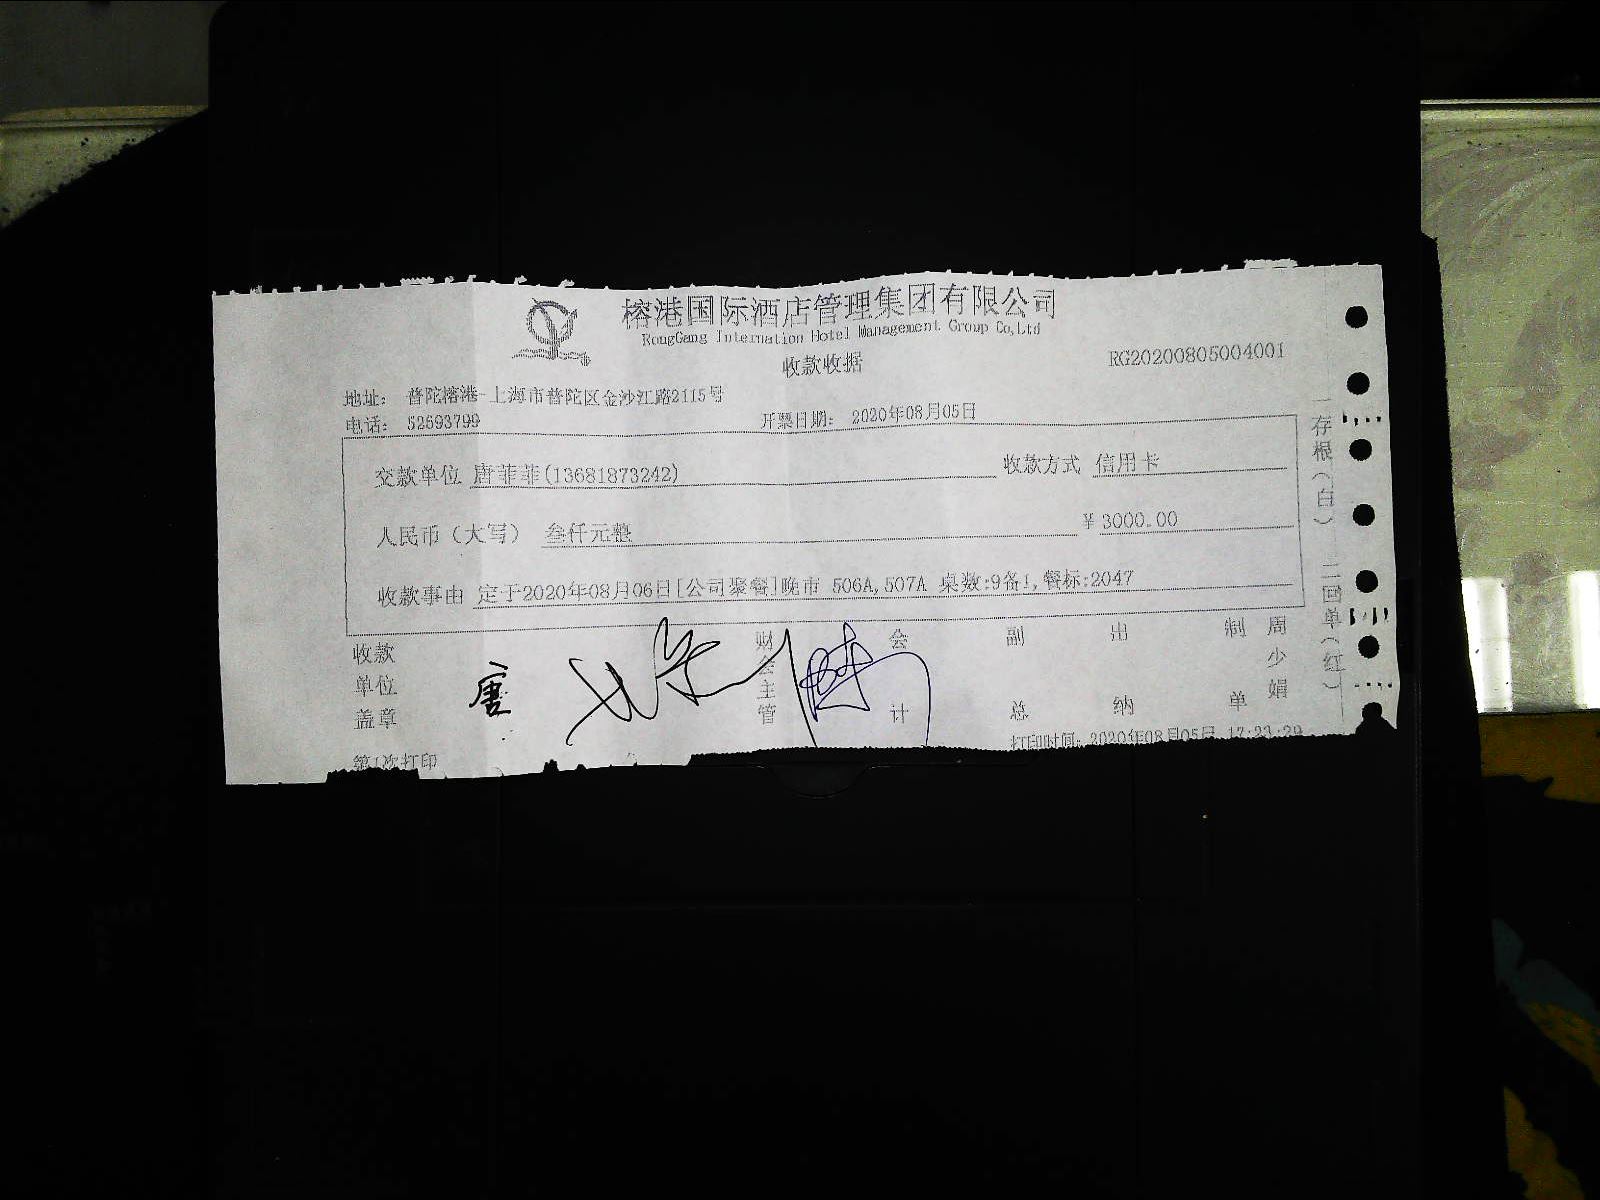 榕港国际酒店管理集团有限公司
RongGang Internation Hotel Management Group Co,Ltd
收款收据
RG20200805004001
地址: 普陀榕港-上海市普陀区金沙江路2115号
电话: 52693799
开票日期: 2020年08月05日
交款单位 唐菲菲(13681873242) 收款方式 信用卡
人民币(大写) 叁仟元整 ¥ 3000.00
收款事由 定于2020年08月06日[公司聚餐]晚市 506A,507A 桌数:9备1,餐标:2047
收款单位盖章 唐
财会主管
会计
副总
出纳
制单 周少娟
第1次打印
打印时间: 2020年08月05日 17:23:29
一存根(白) 二回单(红)